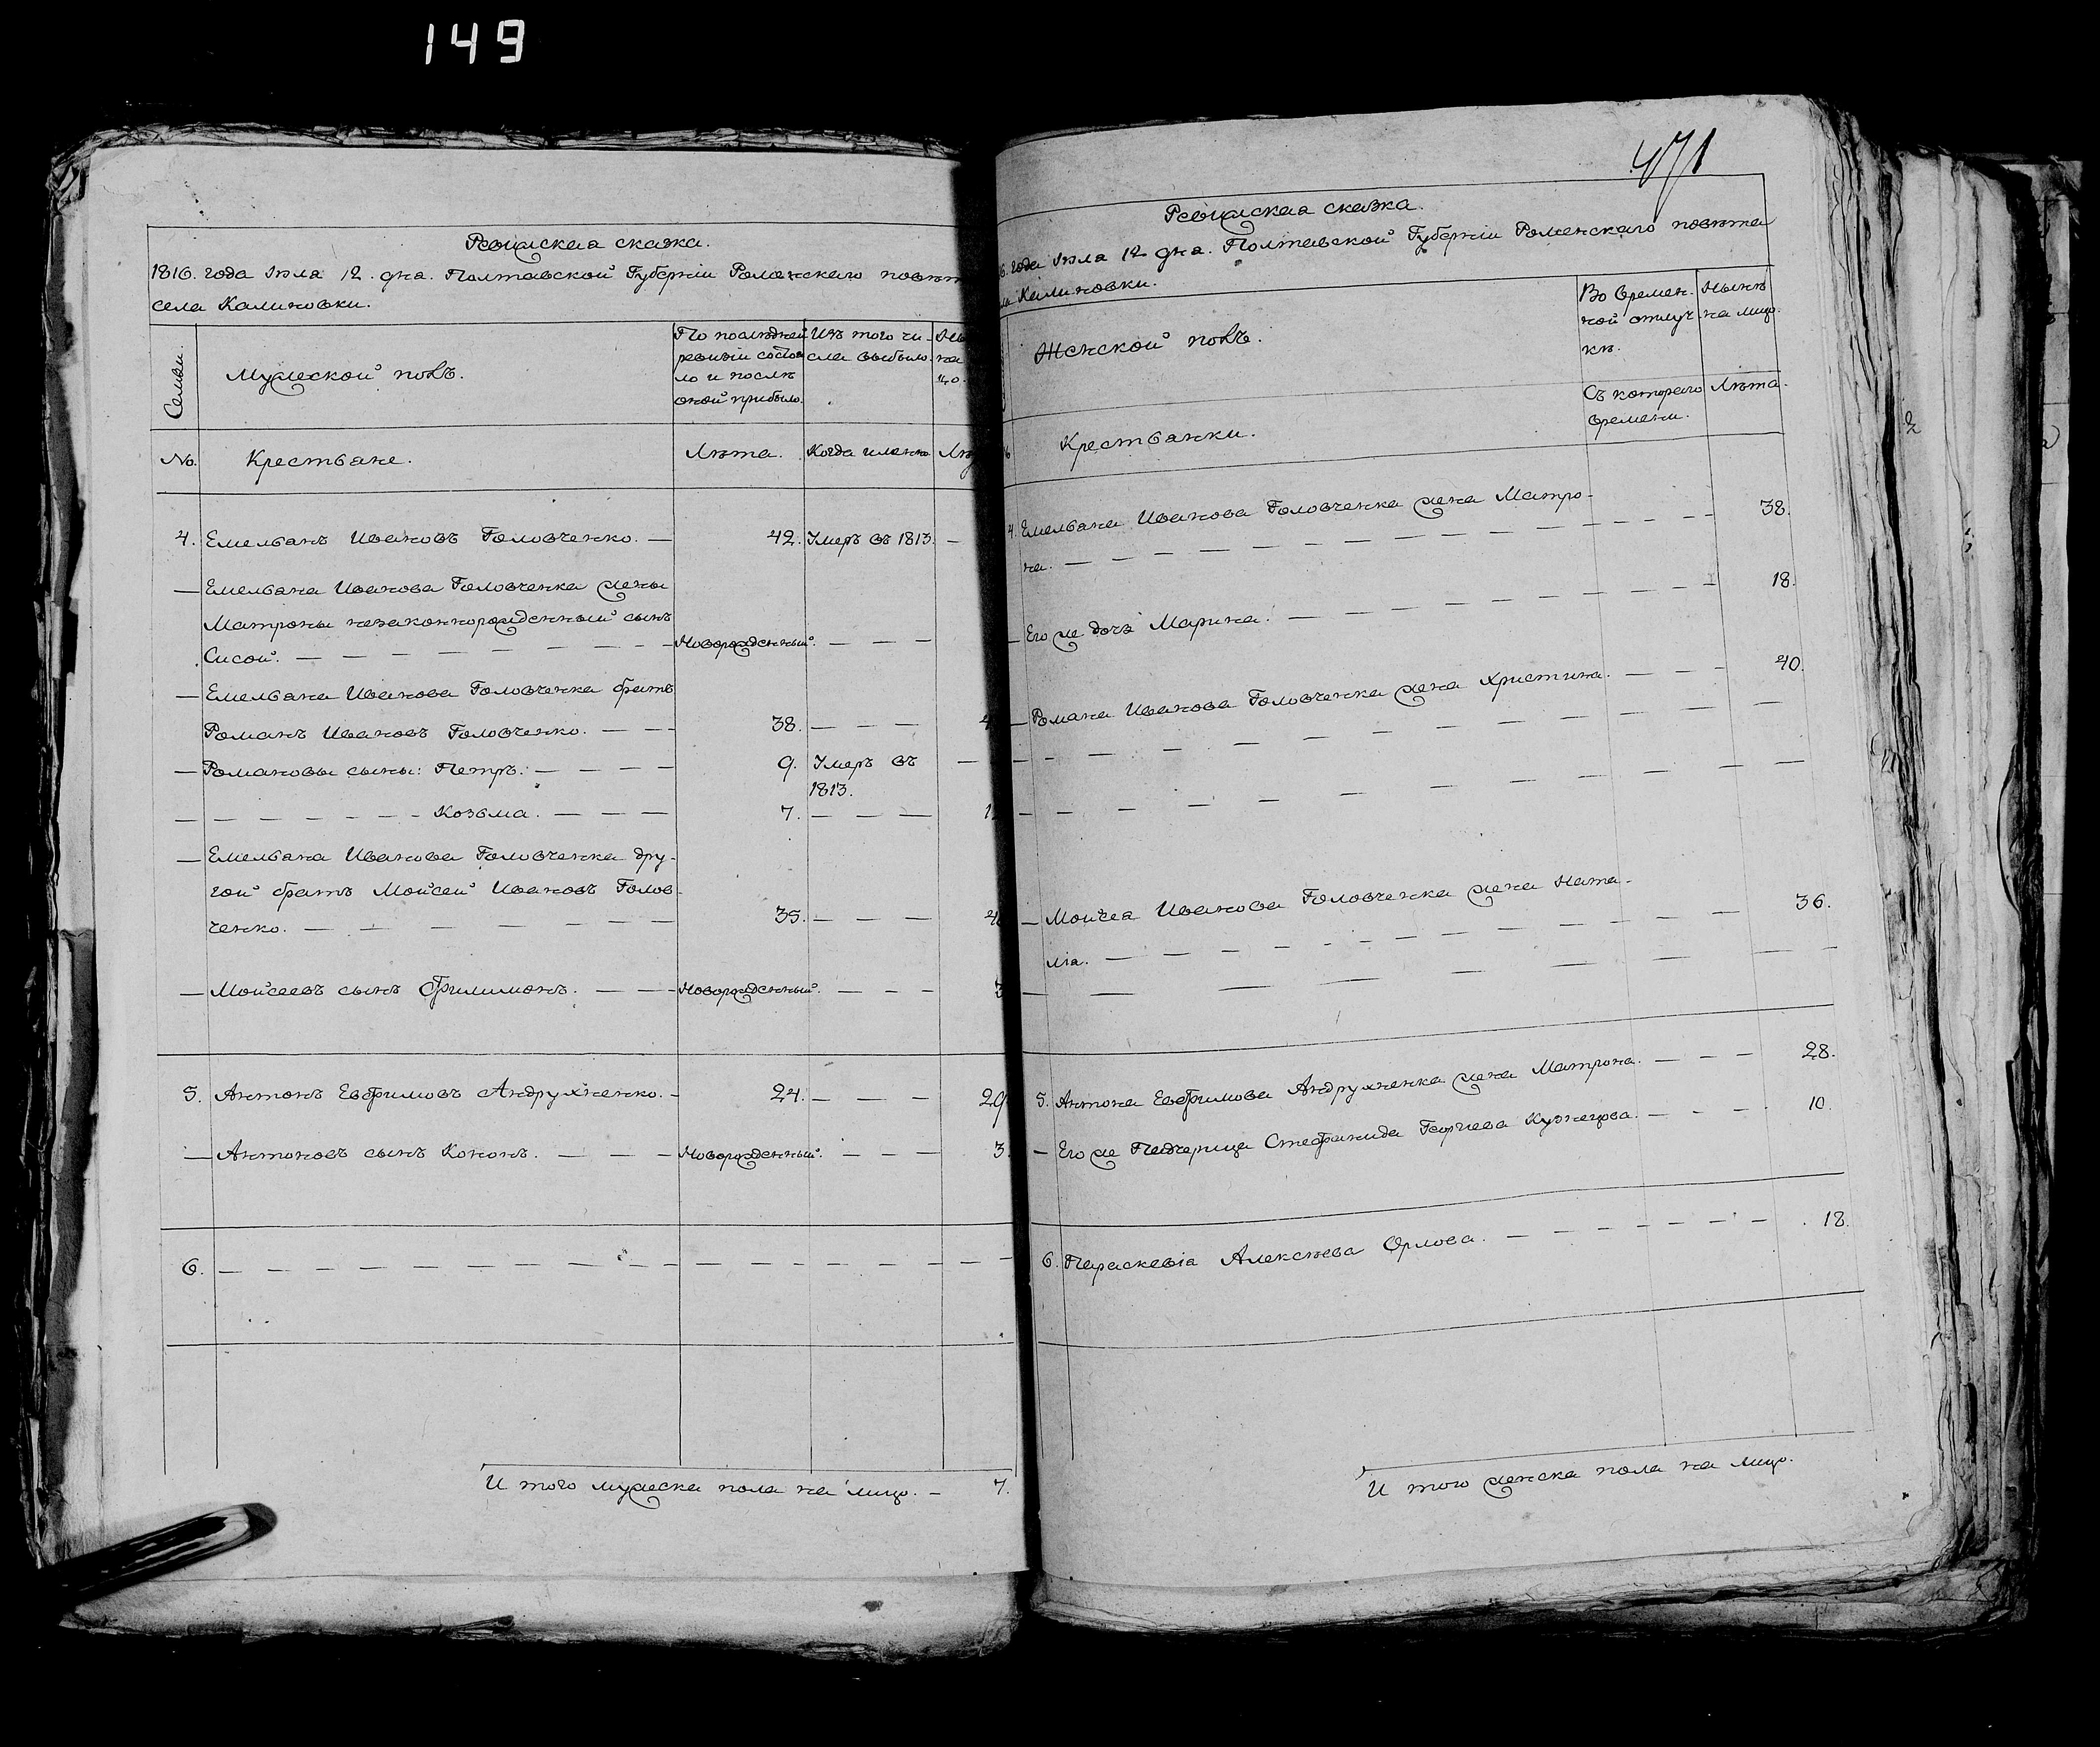 149
Ревижская сказка.
1816. года Іюла 12. дна. Полтавской Губерніи Роменскаго повѣт
села Калиновки.
Семьи.
Мужеской полъ.
По послѣдней
ревизіи состоя
ло и послѣ
оной прибыло.
Изъ того чи-
сла выбыло.
на
цо.
№.
Крестьане.
Лѣта.
Когда именно
Лѣ
4. Емельанъ Ивановъ Головченко. — 42. Умеръ въ 1813. —
— Емельана Иванова Головченка жены
Матроны незаконнорожденный сынъ
Сисой. — — — Новорожденный. — — —
— Емельана Иванова Головченка братъ
Романъ Ивановъ Головченко. — — 38. — — — 4
— Романовы сыны: Петръ. — — — — 9. Умеръ въ —
1813.
— — — — — — Козьма. — — — 7. — — — 1
— Емельана Иванова Головченка дру-
гой братъ Мойсей Ивановъ Голов-
ченко. — — — — — — 35. — — — 4
— Мойсеевъ сынъ Филимонъ. — — — Новорожденный. — — — 3
5. Антонъ Евфимовъ Андрухненко. — 24. — — — 29
— Антоновъ сынъ Кононъ. — — — Новорожденный. — — — 3.
6. — — — — — — — — — — — —
И того мужеска пола на лицо. — 7.
471
Ревижская сказка.
6. года Іюла 12 дна. Полтавской Губерніи Роменскаго повѣта
ла Калиновки.
Женской полъ.
Во времен-
ной отлуч-
кѣ.
Нынѣ
на лицо.
Съ котораго
времени.
Лѣта.
Крестьанки.
4. Емельана Иванова Головченка жена Матро-
на. — — — — — — — — — — 38.
— Его же дочь Марина. — — — — — — — 18.
— Романа Иванова Головченка жена Христина. — — — 40.
— — — — — — — — — —
— — — — — — — — — —
— Мойсеа Иванова Головченка жена Ната-
ліа. — — — — — — — — — — 36.
— — — — — — — —
5. Антона Евфимова Андрухненка жена Матрона. — — — 28.
— Его же Падчерица Стефанида Георгиева Кузнецова. — — — 10.
6. Параскевіа Алексѣева Орлова. — — — — — — — 18.
И того женска пола на лицо.